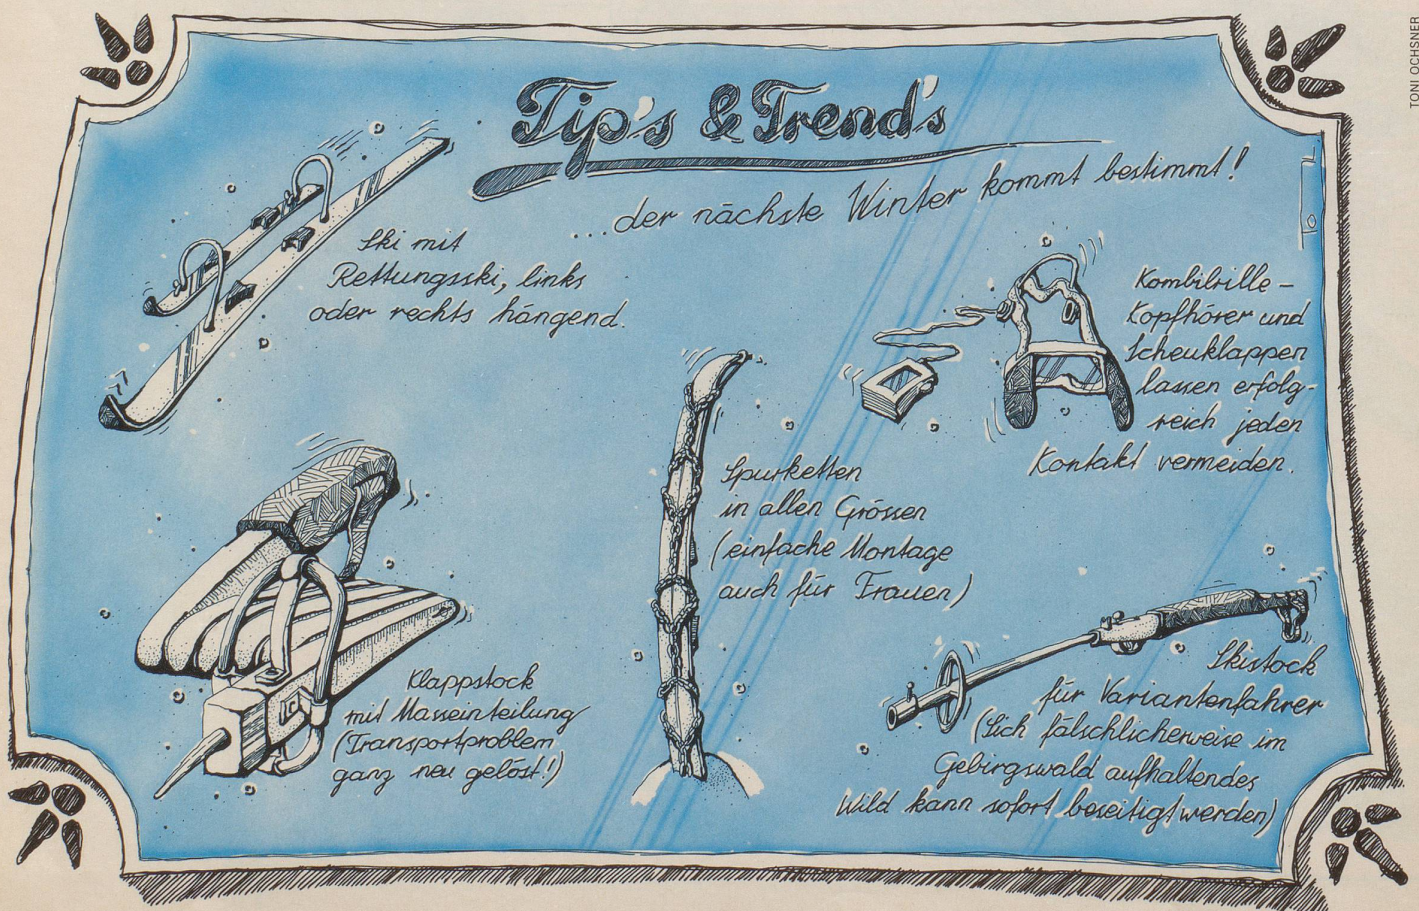 TONI OCHSNER
Tip's & Trend's
...der nächste Winter kommt bestimmt!
Ski mit
Rettungsski, links
oder rechts hängend.
Kombibrille-
Kopfhörer und
Scheuklappen
lassen erfolg-
reich jeden
Kontakt vermeiden.
Spurketten
in allen Grössen
(einfache Montage
auch für Frauen)
Klappstock
mit Masseinteilung
(Transportproblem
ganz neu gelöst!)
Skistock
für Variantenfahrer
(Sich fälschlicherweise im
Gebirgswald aufhaltendes
Wild kann sofort beseitigt werden)